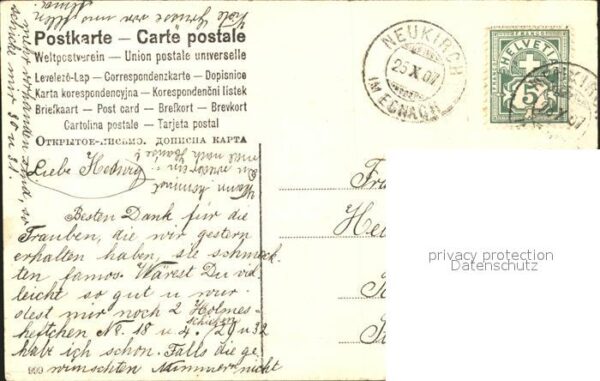 Viele Grüsse von uns allen
Postkarte – Carte postale
Weltpostverein – Union postale universelle
Levelező-Lap – Correspondenzkarte – Dopisnice
Karta korespondencyjna – Korespondenční listek
Briefkaart – Post card – Brefkort – Brevkort
Cartolina postale – Tarjeta postal
Открытое-письмо. дописна карта
NEUKIRCH
25.X.07
IM EGNACH
HELVETIA
5
Liebe Hedwig
Wann kommst
Du wieder
mal nach Hause?
Besten Dank für die
Trauben, die wir gestern
erhalten haben, sie schmeck-
ten famos. Wärest Du viel
leicht so gut u. wür-
dest mir noch 2 Holmes-
heftchen No. 18 u. 20 u 32
schicken
habe ich schon. Falls die ge
wünschten Nummern nicht
mehr vorhanden sind, so
schicke mir 30 u. 31.
999
Fr
He
privacy protection
Datenschutz